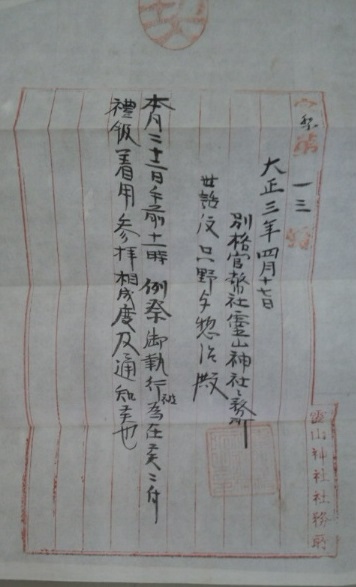 第一三號
大正三年四月十七日
別格官幣社靈山神社々務所
世話役只野與惣治殿
本月二十二日午前十一時例祭御執行被為在候ニ付
禮服着用参拝相成度及通知候也
靈山神社社務所
契